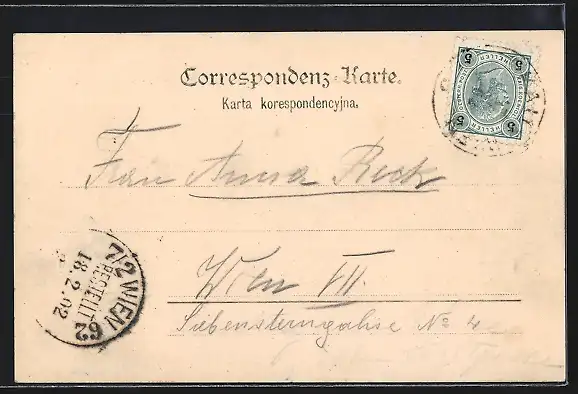 Correspondenz-Karte.
Karta korespondencyjna.
5 HELLER 5
5 HELLER 5
Frau Anna Reck
Wien VII.
Siebensterngasse No 4
7/2 WIEN 62
BESTELLT
18.2.02